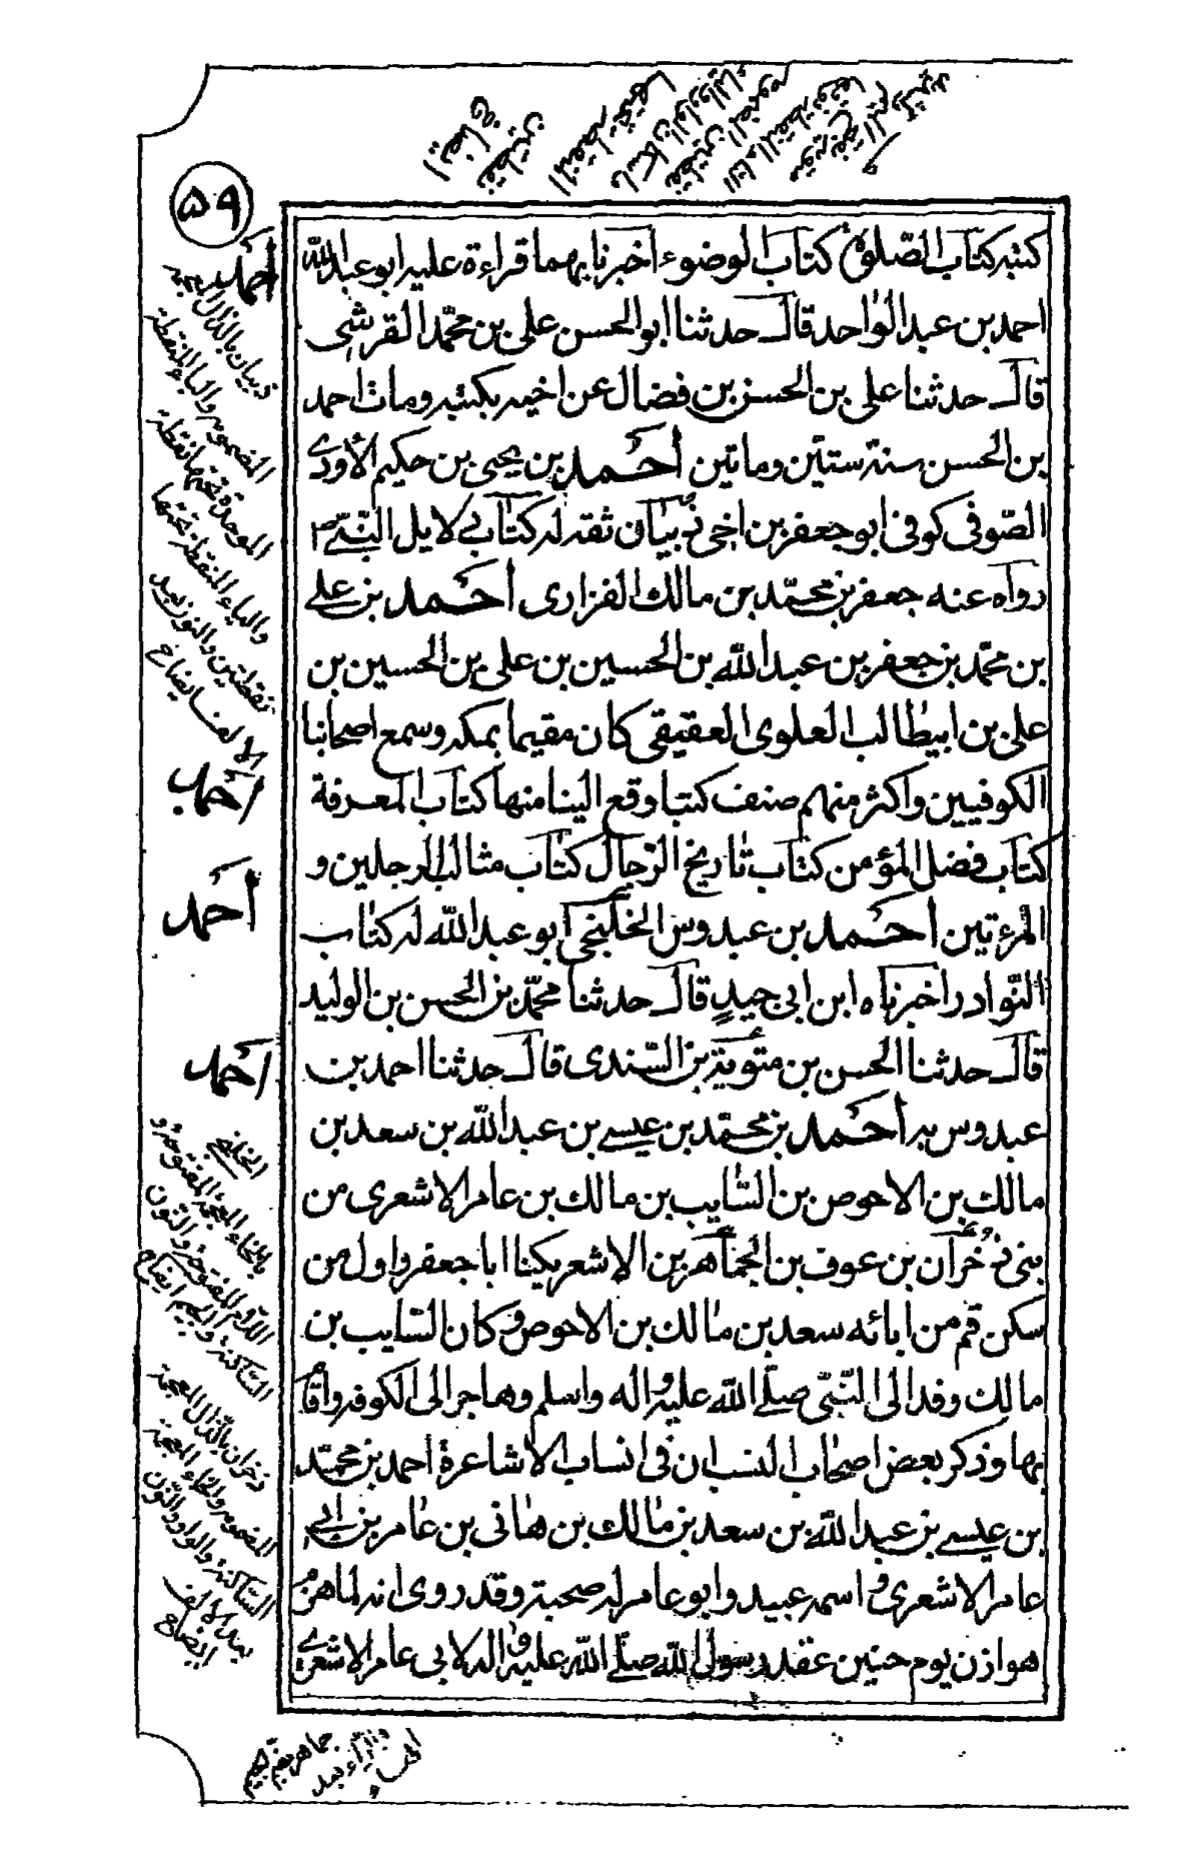 ۵۹
كتبه كتاب الصّلوة كتاب الوضوء اخبرنا بهما قراءة عليه ابو عبدالله
احمد بن عبدالواحد قال حدثنا ابوالحسن على بن محمّد القرشى
قال حدثنا على بن الحسن بن فضال عن اخيه بكتبه ومات احمد
بن الحسن سنة ستّين وماتين أحمد بن يحيى بن حكيم الأودى
الصّوفى كوفى ابوجعفر بن اخى ذبيان ثقه له كتاب دلايل النّبى ص
رواه عنه جعفر بن محمّد بن مالك الفزارى أحمد بن على
بن محمّد بن جعفر بن عبدالله بن الحسين بن على بن الحسين بن
على بن ابيطالب العلوى العقيقى كان مقيما بمكه وسمع اصحابنا
الكوفيين واكثر منهم صنف كتبا وقع الينا منها كتاب المعرفة
كتاب فضل المؤمن كتاب تاريخ الرّجال كتاب مثالب الرجلين و
المرءتين أحمد بن عبدوس الخلنجى ابو عبدالله له كتاب
النّوادر اخبرناه ابن ابى جيدٍ قال حدثنا محمّد بن الحسن بن الوليد
قال حدثنا الحسن بن متّوية بن السّندى قال حدثنا احمد بن
عبدوس به أحمد بن محمّد بن عيسى بن عبدالله بن سعد بن
مالك بن الاحوص بن السّايب بن مالك بن عامر الاشعرى من
بنى ذُخران بن عوف بن الجماهر بن الاشعر يكنا ابا جعفر واول من
سكن قم من ابائه سعد بن مالك بن الاحوص وكان السّايب بن
مالك وفد الى النّبىّ صلّى الله عليه واله واسلم وهاجر الى الكوفه واقام
بها وذكر بعض اصحاب النسب ان فى انساب الاشاعرة احمد بن محمّد
بن عيسى بن عبدالله بن سعد بن مالك بن هانى بن عامر بن ابى
عامر الاشعرى و اسمه عبيد وابو عامر له صحبة وقد روى انه لما هزم
هوازن يوم حنين عقد رسول الله صلّى الله عليه واله لابى عامر الاشعرى
أحمد
ذبيان بالذّال المعجمة
المضمومه والباء المنقطة
الموحدة تحتها نقطة
والياء المنقطة تحتها
نقطتين والنون بعد
الالف ايضاح
أحمد
أحمد
أحمد
الخلنجى
بالخاء المعجمة المفتوحة و
اللّام المفتوحة والنّون
السّاكنة والجيم ايضاح
ذخران بالذّال المعجمة
المضمومه والخاء المعجمة
السّاكنة والواو والنّون
بعد الالف
ايضاح
جماهر بضم الجيم